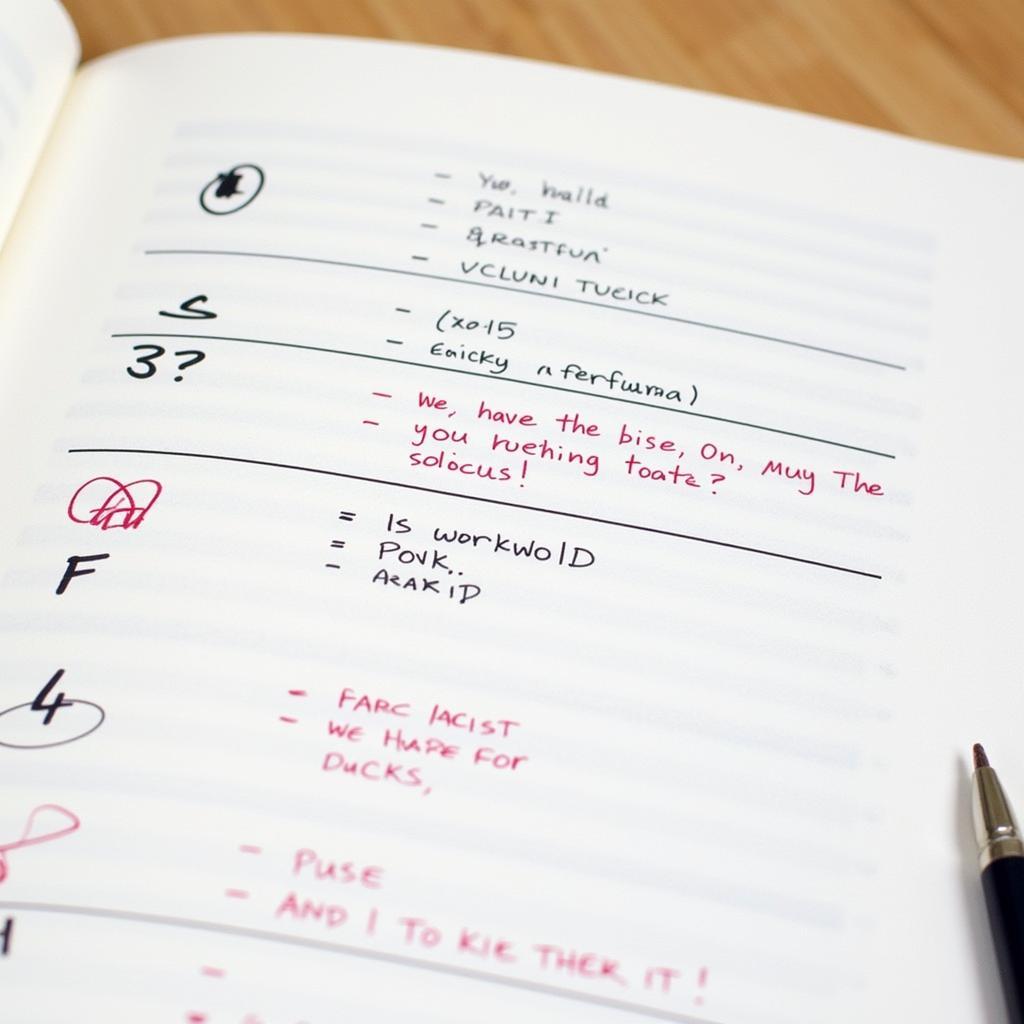 - Yue. halld
- PAIT I
- VCLUNI TUEICK
S
- (xo-15
- Eaicky
3?
- We, have the bise, On, Muy The
- you ruehing toate?
solocus!
= Is workwolD
F
= Povk..
- ARAKID
4
- FARC IACIST
- WE HAPE FOR
DUCKS,
- PUSE
- AND I TO KIE THEK IT!